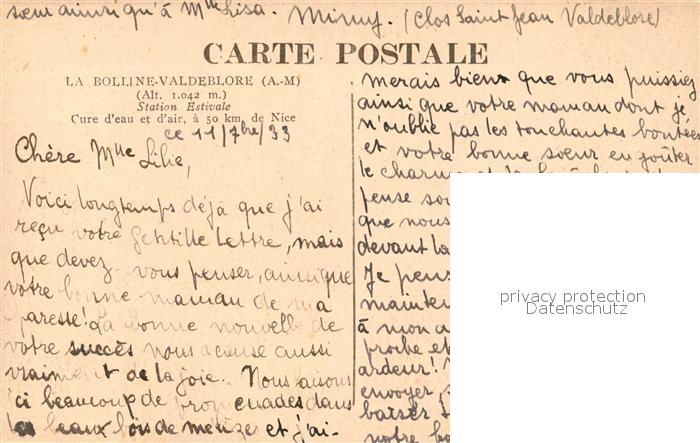 sœur ainsi qu'à Mlle Lisa. Mimy. (Clos Saint Jean Valdeblore)
CARTE POSTALE
LA BOLLINE-VALDEBLORE (A.-M)
(Alt. 1.042 m.)
Station Estivale
Cure d'eau et d'air, à 50 km. de Nice
ce 11/7bre/33
Chère Mlle Lilie,
Voici longtemps déjà que j'ai
reçu votre gentille lettre, mais
que devez-vous penser, ainsi que
votre bonne maman de ma
paresse! La bonne nouvelle de
votre succès nous a causé aussi
vraiment de la joie. Nous faisons
ici beaucoup de promenades dans
les beaux bois de mélèzes et j'ai-
merais bien que vous puissiez
ainsi que votre maman dont je
n'oublie pas les touchantes bontées
et votre bonne sœur en goûter
le charme et
pense
que nous
devant la
Je
à mon
proche et
ardeur!
envoyer
baiser
notre
privacy protection
Datenschutz